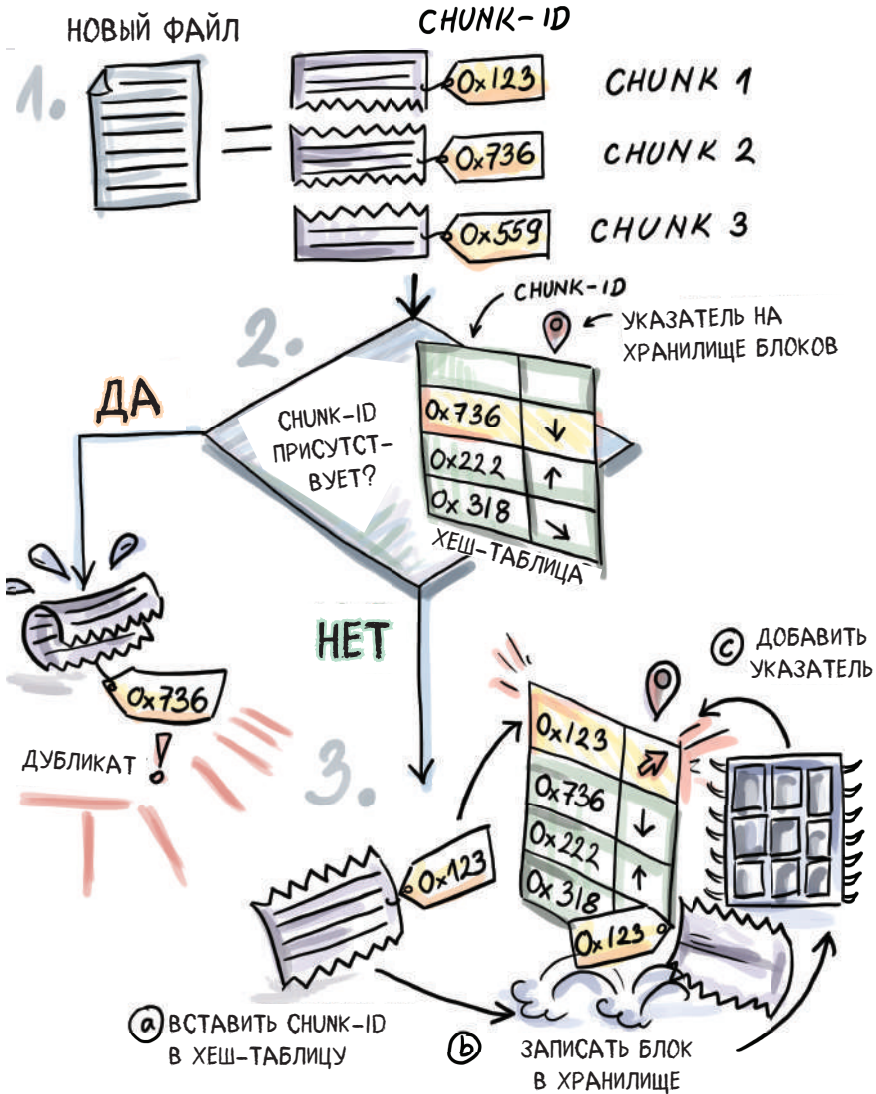 НОВЫЙ ФАЙЛ
CHUNK-ID
1.
0x123
CHUNK 1
0x736
CHUNK 2
0x559
CHUNK 3
2.
CHUNK-ID
УКАЗАТЕЛЬ НА
ХРАНИЛИЩЕ БЛОКОВ
ДА
CHUNK-ID
ПРИСУТСТ-
ВУЕТ?
0x736
0x222
0x318
ХЕШ-ТАБЛИЦА
НЕТ
0x736
ДУБЛИКАТ !
3.
c ДОБАВИТЬ
УКАЗАТЕЛЬ
0x123
0x736
0x222
0x318
0x123
0x123
a ВСТАВИТЬ CHUNK-ID
В ХЕШ-ТАБЛИЦУ
b ЗАПИСАТЬ БЛОК
В ХРАНИЛИЩЕ